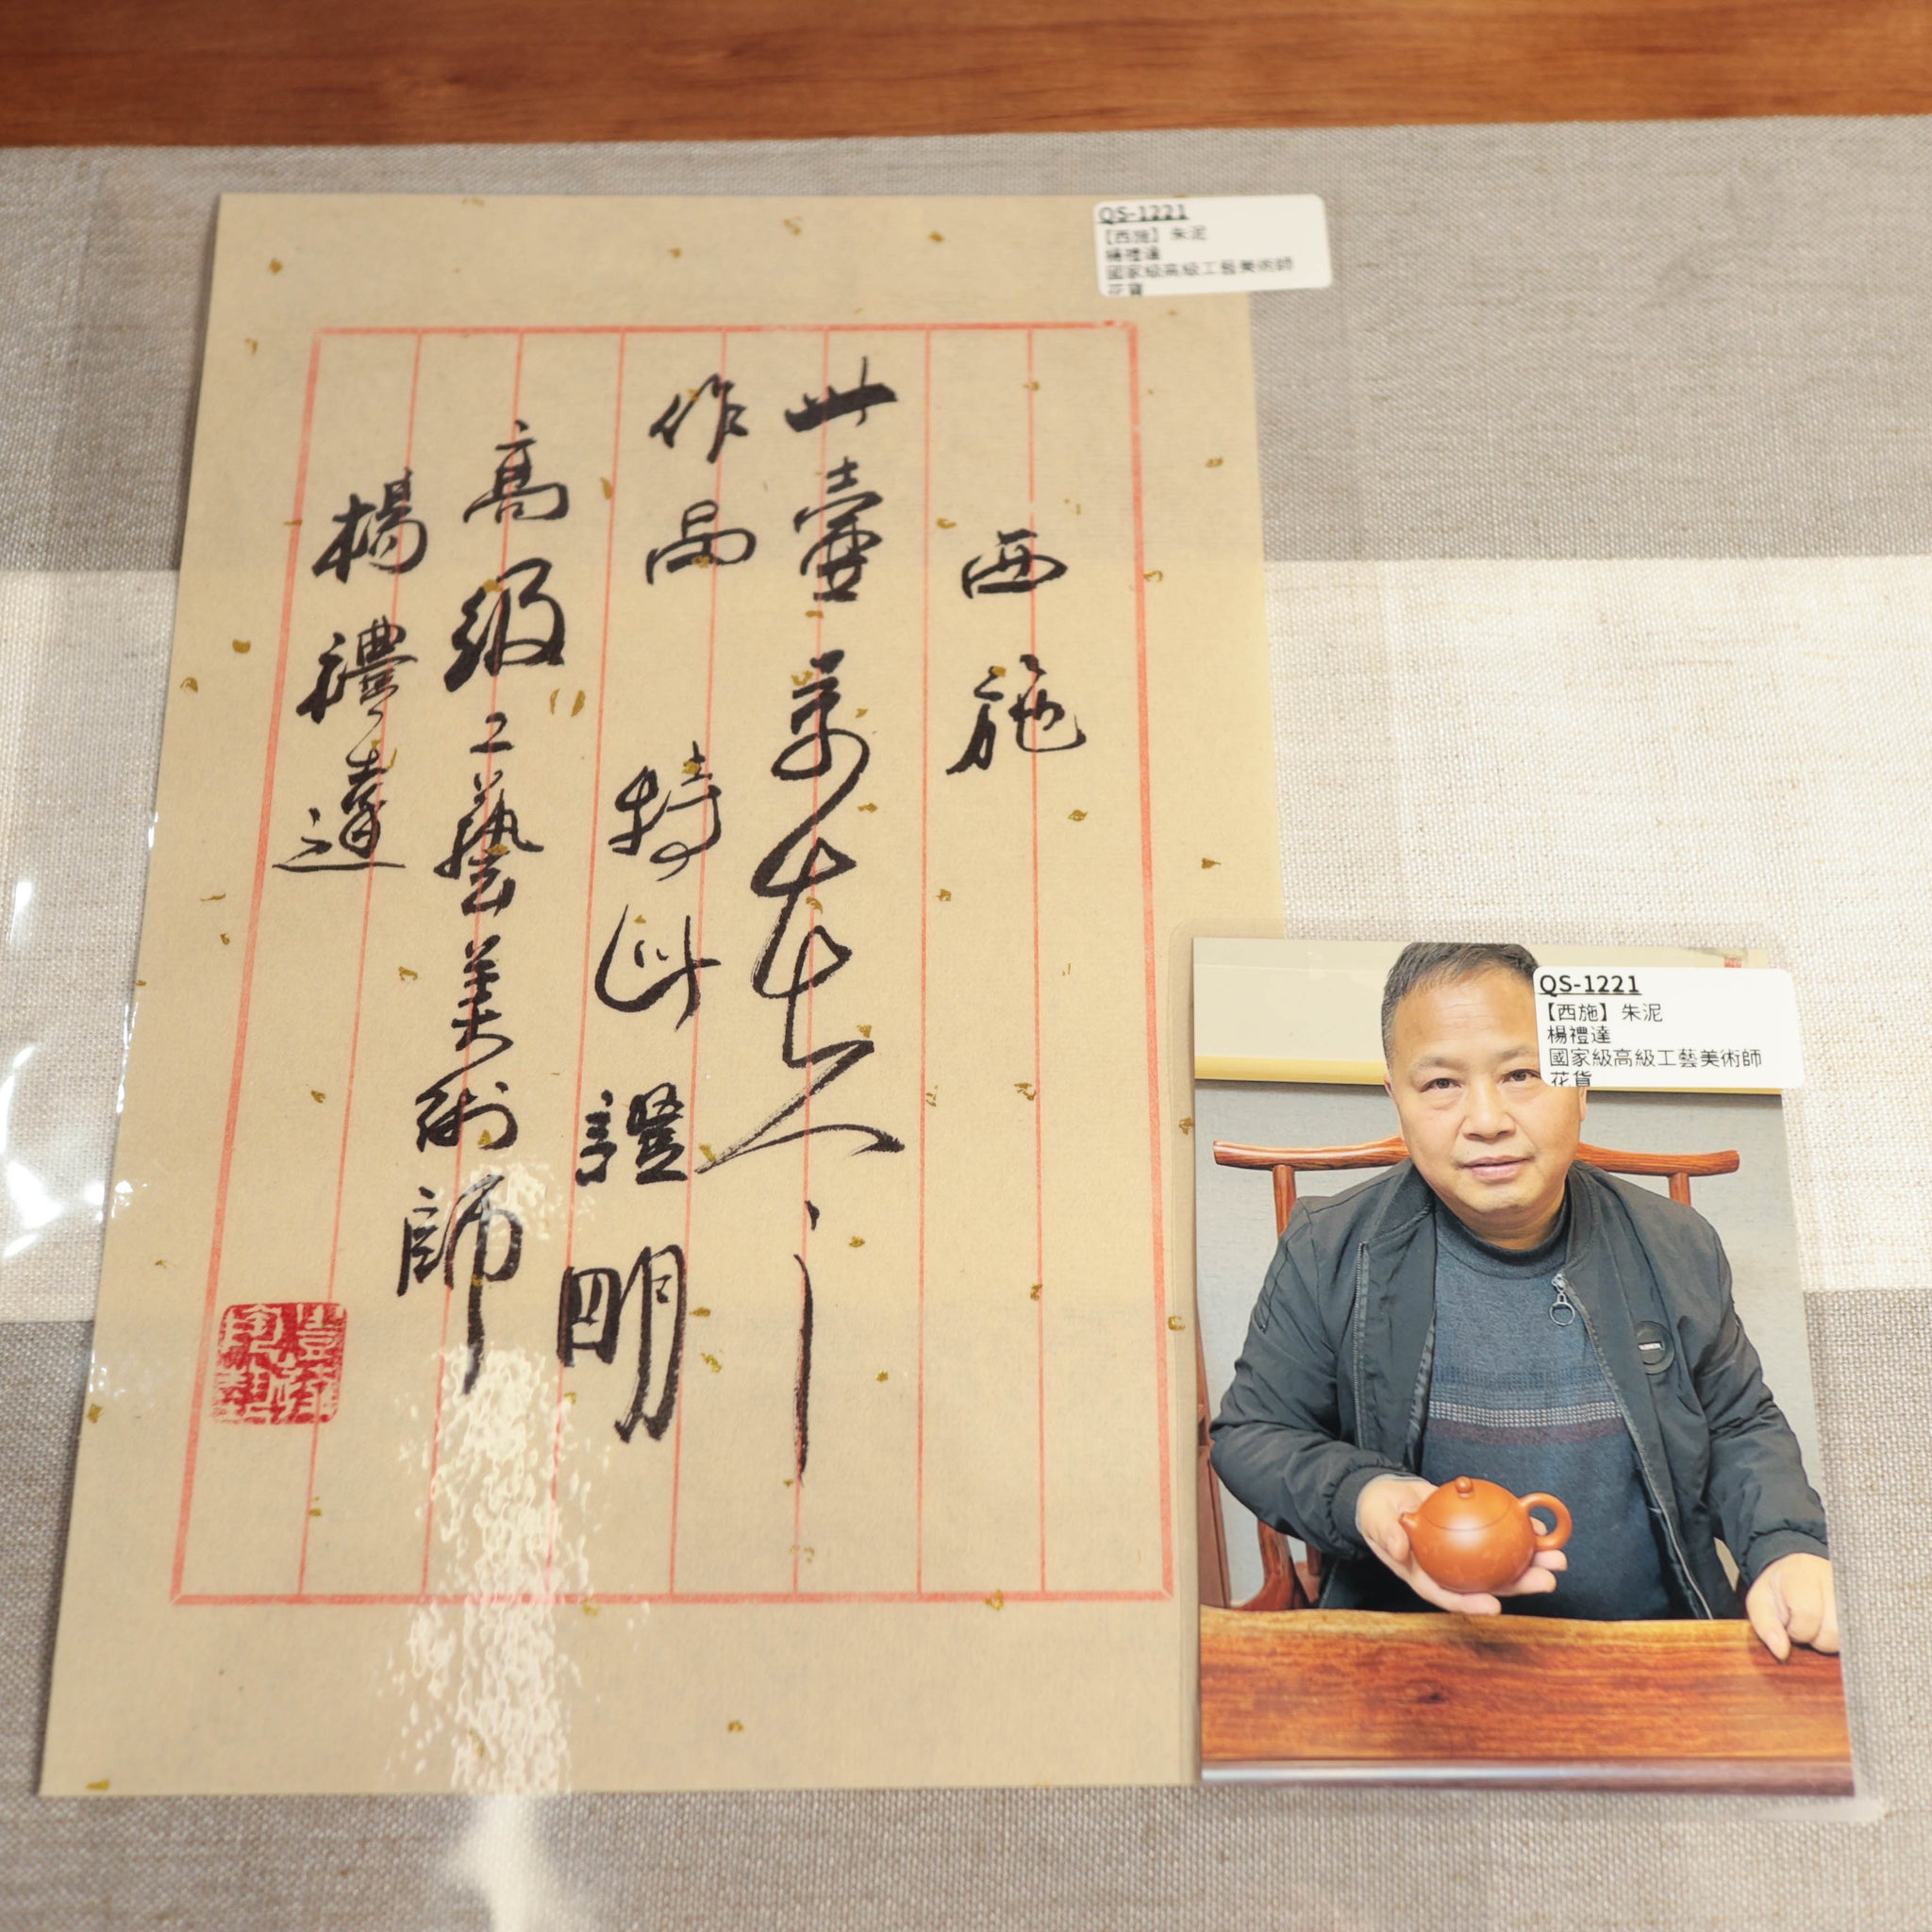 西施
此壺系本人之
作品 特此證明
高級工藝美術師
楊禮達
QS-1221
【西施】朱泥
楊禮達
國家級高級工藝美術師
花貨
QS-1221
【西施】朱泥
楊禮達
國家級高級工藝美術師
花貨